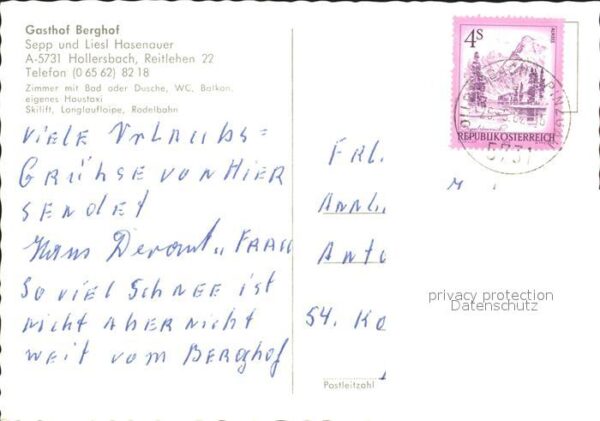 Gasthof Berghof
Sepp und Liesl Hasenauer
A-5731 Hollersbach, Reitlehen 22
Telefon (0 65 62) 82 18
Zimmer mit Bad oder Dusche, WC, Balkon,
eigenes Haustaxi
Skilift, Langlaufloipe, Rodelbahn
Viele Urlaubs=
Grühse von Hier
sendet
Hans u. Frau
So viel Schnee ist
nicht aber nicht
weit vom Berghof
4S
REPUBLIK ÖSTERREICH
5731
Frl.
Ann
Anto
54. Ko
Postleitzahl
privacy protection
Datenschutz